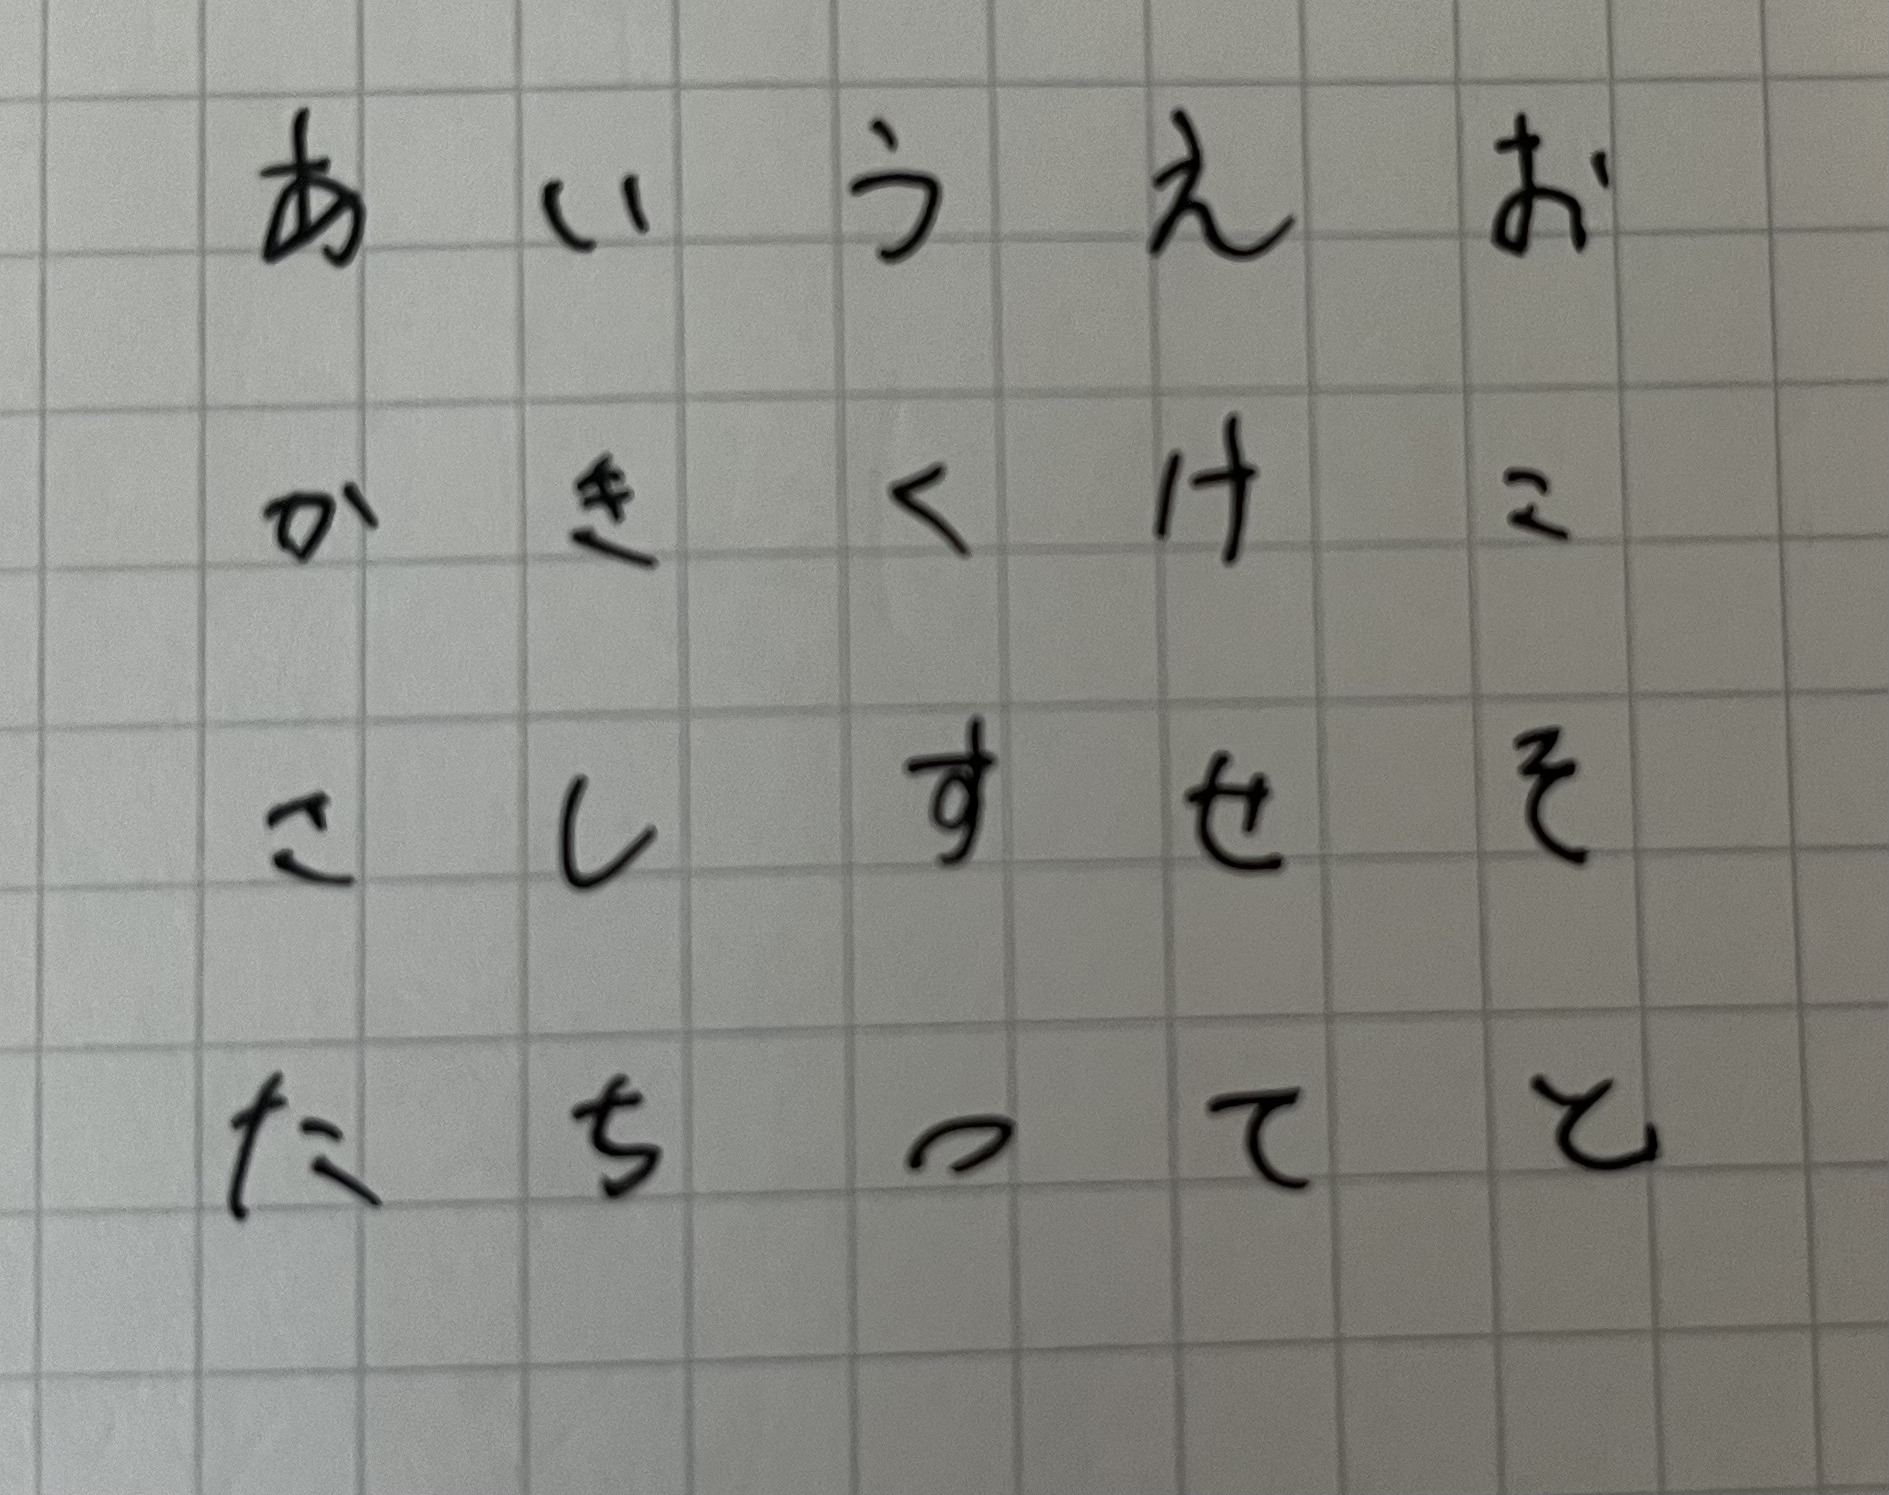 あ い う え お
か き く け こ
さ し す せ そ
た ち つ て と